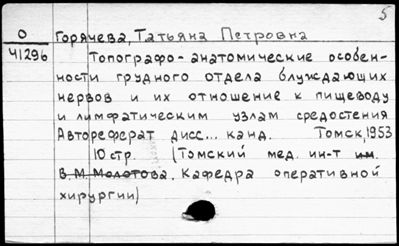 5
О
41296
Горячева, Татьяна Петровна
Топографо-анатомические особен-
ности грудного отдела блуждающих
нервов и их отношение к пищеводу
и лимфатическим узлам средостения
Автореферат дисс... канд. Томск, 1953
10 стр. (Томский мед. ин-т им.
В. М. Молотова. Кафедра оперативной
хирургии)